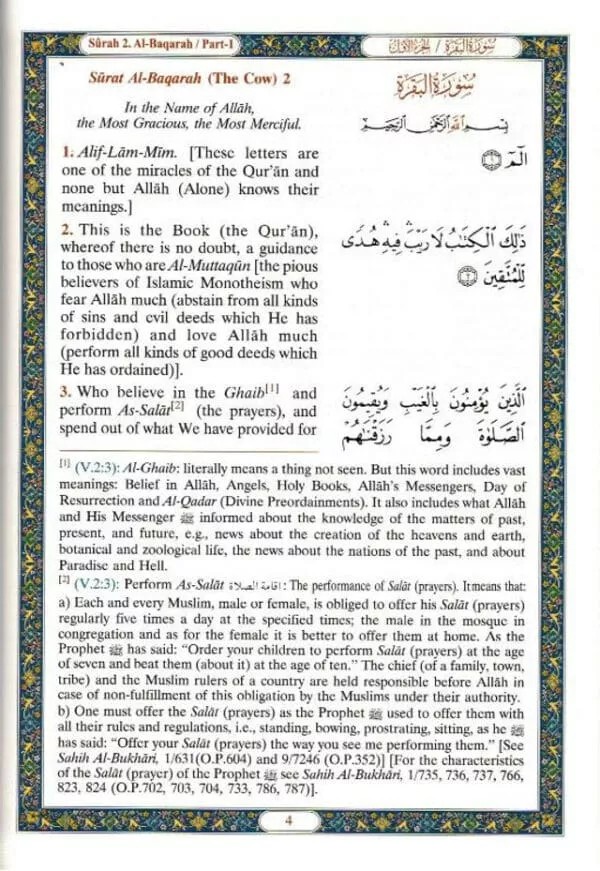 Sûrah 2. Al-Baqarah / Part-1
سورة البقرة / الجزء الأول
Sûrat Al-Baqarah (The Cow) 2
In the Name of Allâh,
the Most Gracious, the Most Merciful.
1. Alif-Lâm-Mîm. [These letters are
one of the miracles of the Qur’ân and
none but Allâh (Alone) knows their
meanings.]
2. This is the Book (the Qur’ân),
whereof there is no doubt, a guidance
to those who are Al-Muttaqûn [the pious
believers of Islamic Monotheism who
fear Allâh much (abstain from all kinds
of sins and evil deeds which He has
forbidden) and love Allâh much
(perform all kinds of good deeds which
He has ordained)].
3. Who believe in the Ghaib[1] and
perform As-Salât[2] (the prayers), and
spend out of what We have provided for
سورة البقرة
بِسْمِ اللَّهِ الرَّحْمَٰنِ الرَّحِيمِ
الٓمٓ ۝١
ذَٰلِكَ الْكِتَابُ لَا رَيْبَ ۛ فِيهِ ۛ هُدًى
لِّلْمُتَّقِينَ ۝٢
الَّذِينَ يُؤْمِنُونَ بِالْغَيْبِ وَيُقِيمُونَ
الصَّلَاةَ وَمِمَّا رَزَقْنَاهُمْ
[1] (V.2:3): Al-Ghaib: literally means a thing not seen. But this word includes vast
meanings: Belief in Allâh, Angels, Holy Books, Allâh’s Messengers, Day of
Resurrection and Al-Qadar (Divine Preordainments). It also includes what Allâh
and His Messenger ﷺ informed about the knowledge of the matters of past,
present, and future, e.g., news about the creation of the heavens and earth,
botanical and zoological life, the news about the nations of the past, and about
Paradise and Hell.
[2] (V.2:3): Perform As-Salât اقامة الصلاة : The performance of Salât (prayers). It means that:
a) Each and every Muslim, male or female, is obliged to offer his Salât (prayers)
regularly five times a day at the specified times; the male in the mosque in
congregation and as for the female it is better to offer them at home. As the
Prophet ﷺ has said: “Order your children to perform Salât (prayers) at the age
of seven and beat them (about it) at the age of ten.” The chief (of a family, town,
tribe) and the Muslim rulers of a country are held responsible before Allâh in
case of non-fulfillment of this obligation by the Muslims under their authority.
b) One must offer the Salât (prayers) as the Prophet ﷺ used to offer them with
all their rules and regulations, i.e., standing, bowing, prostrating, sitting, as he ﷺ
has said: “Offer your Salât (prayers) the way you see me performing them.” [See
Sahih Al-Bukhâri, 1/631(O.P.604) and 9/7246 (O.P.352)] [For the characteristics
of the Salât (prayer) of the Prophet ﷺ see Sahih Al-Bukhâri, 1/735, 736, 737, 766,
823, 824 (O.P.702, 703, 704, 733, 786, 787)].
4